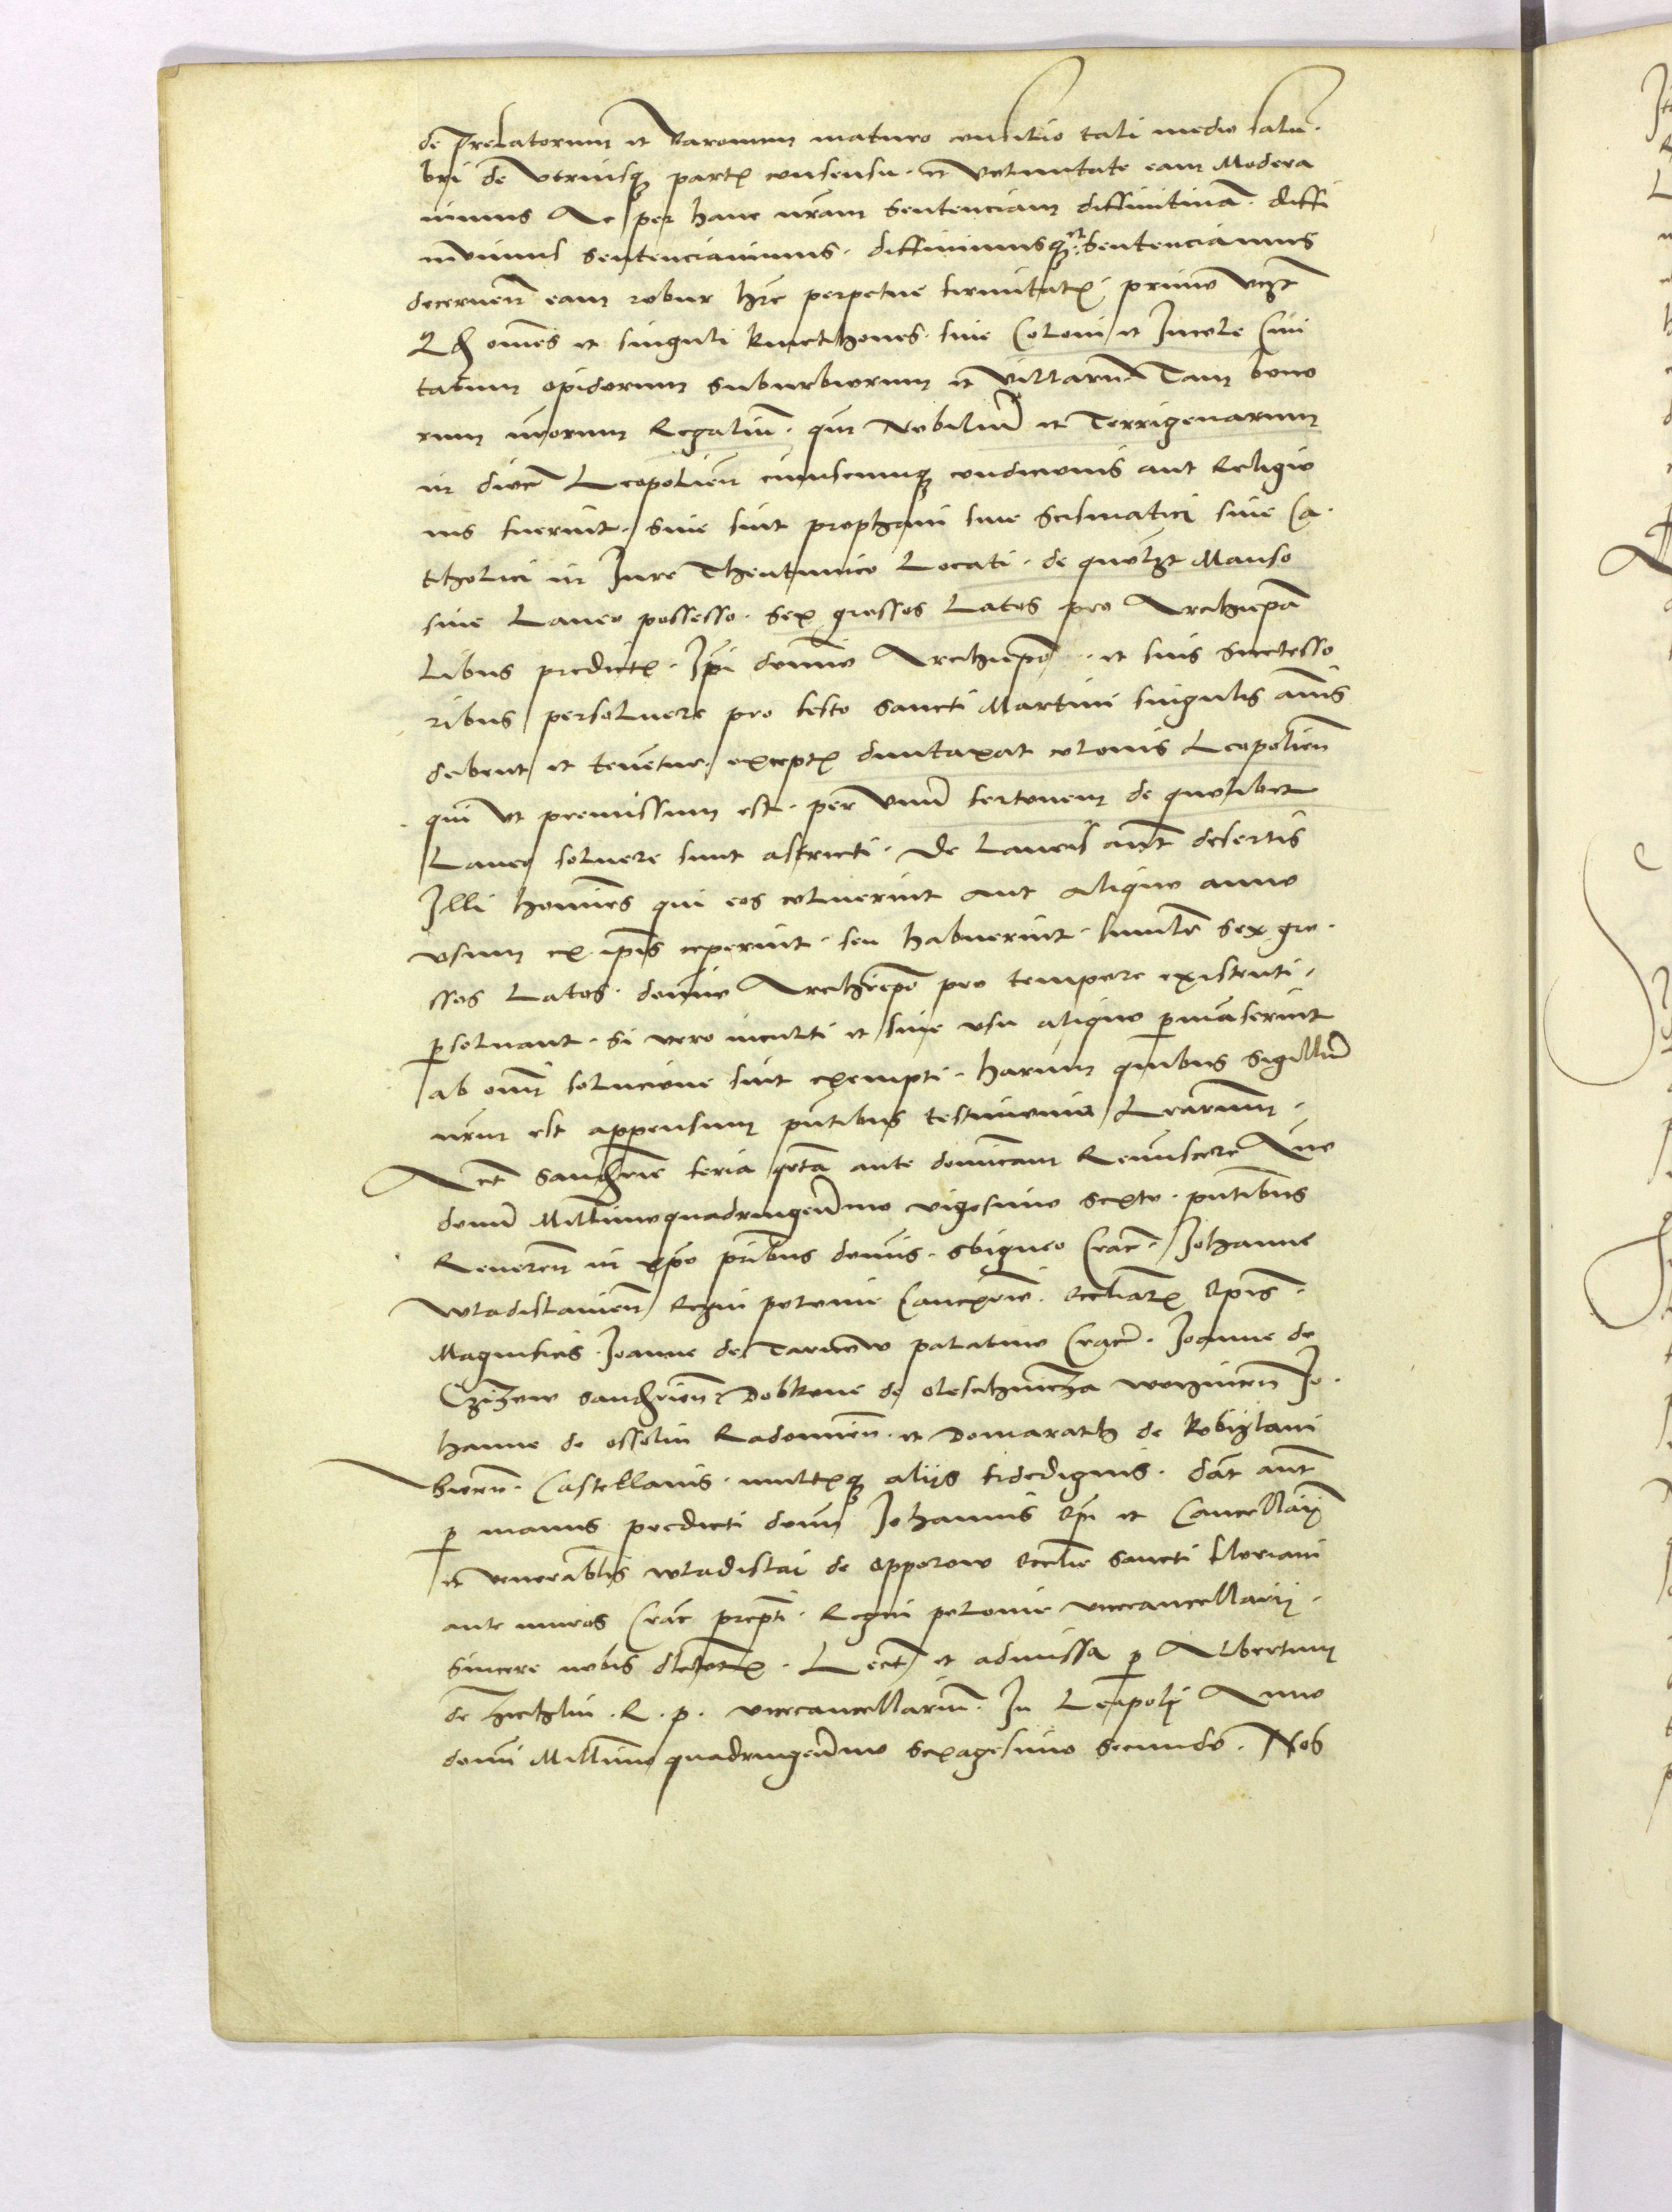 de Prelatorum et Baronum maturo consilio tali medio salu
bri de utriusq partis consensu et voluntate eam Modera
vimus Ac per hanc nram Sentenciam diffinitivā diffi
nivimus Sentenciavimus diffinimusq et Sentenciamus
decernen eam robur hre perpetue firmitatis primo vczt
Qd oms et singuli kmethones sive Coloni et Incole Civi
tatum opidorum suburbiorum et villarū Tam bono
rum nrorum Regaliū qm Nobiliū et Terrigenarum
in dioc Leopolien cuiuscumq condicionis aut Religio
nis fuerint sive sint prophani sive Scismatici sive Ca
tholici in Iure Theutunico Locati de quolzt Manso
sive Laneo possesso Sex grossos Latos pro Archiepa
libus predictis Ipi domino Archiepo et suis successo
ribus persolvere pro festo Sancti Martini singulis annis
debent et tenētur exceptis duntaxat colonis Leopolien
qui ut premissum est per unū fertonem de quolibet
Laneo solvere sunt astricti De Laneis aut desertis
Illi homines qui eos coluerint aut aliquo anno
usum ex ipis ceperint seu habuerint similr Sex gro
ssos Latos domino Archiepo pro tempore existenti
psolvant Si vero inculti et sine usu aliquo pmāserint
ab omi solucione sint exempti harum quibus Sigillū
nrm est appensum pntibus testimonio Lrarum
Act Sandomie feria qnta ante dominicam Reminiscere Āno
domi Millimoquadringenmo vigesimo sexto pntibus
Reveren in xpo pribus domis Sbigneo Crac Johanne
Wladislavien Regni polonie Cancrio Eccliarum Epis
Magnificis Joanne de Tarnow palatino Cracō Joanne de
Czizow Sandomien Dobkone de oleschnicza woynicen Jo
hanne de ossolin Radomien et Domarath de kobylani
biecen Castellanis multisq aliis fidedignis Dat aut
p manus predicti domi Johannis Epi et Cancellarij
et venerablis wladislai de opporow Ecclie Sancti floriani
ante muros Crac prepti Regni polonie vicecancellarij
Sincere nobis dilectorum Lect et admissa p Albertum
de zichlin R p vicecancellariū In Leopoli Anno
domi Millimo quadringenmo sexagesimo secundo Nos